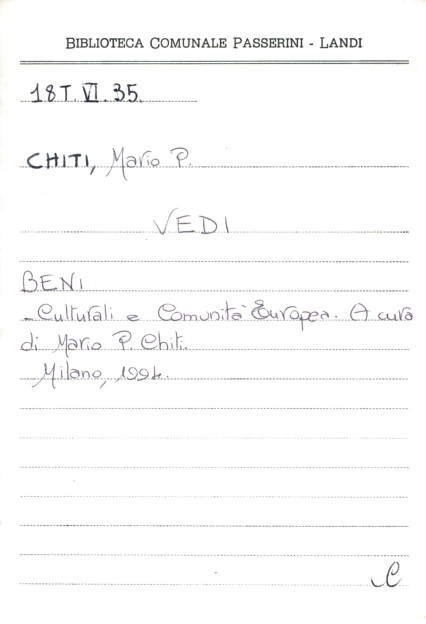 BIBLIOTECA COMUNALE PASSERINI - LANDI
18T.VI.35.
CHITI, Mario P.
VEDI
BENI
- Culturali e Comunità Europea. A cura
di Mario P. Chiti.
Milano, 1994.
C